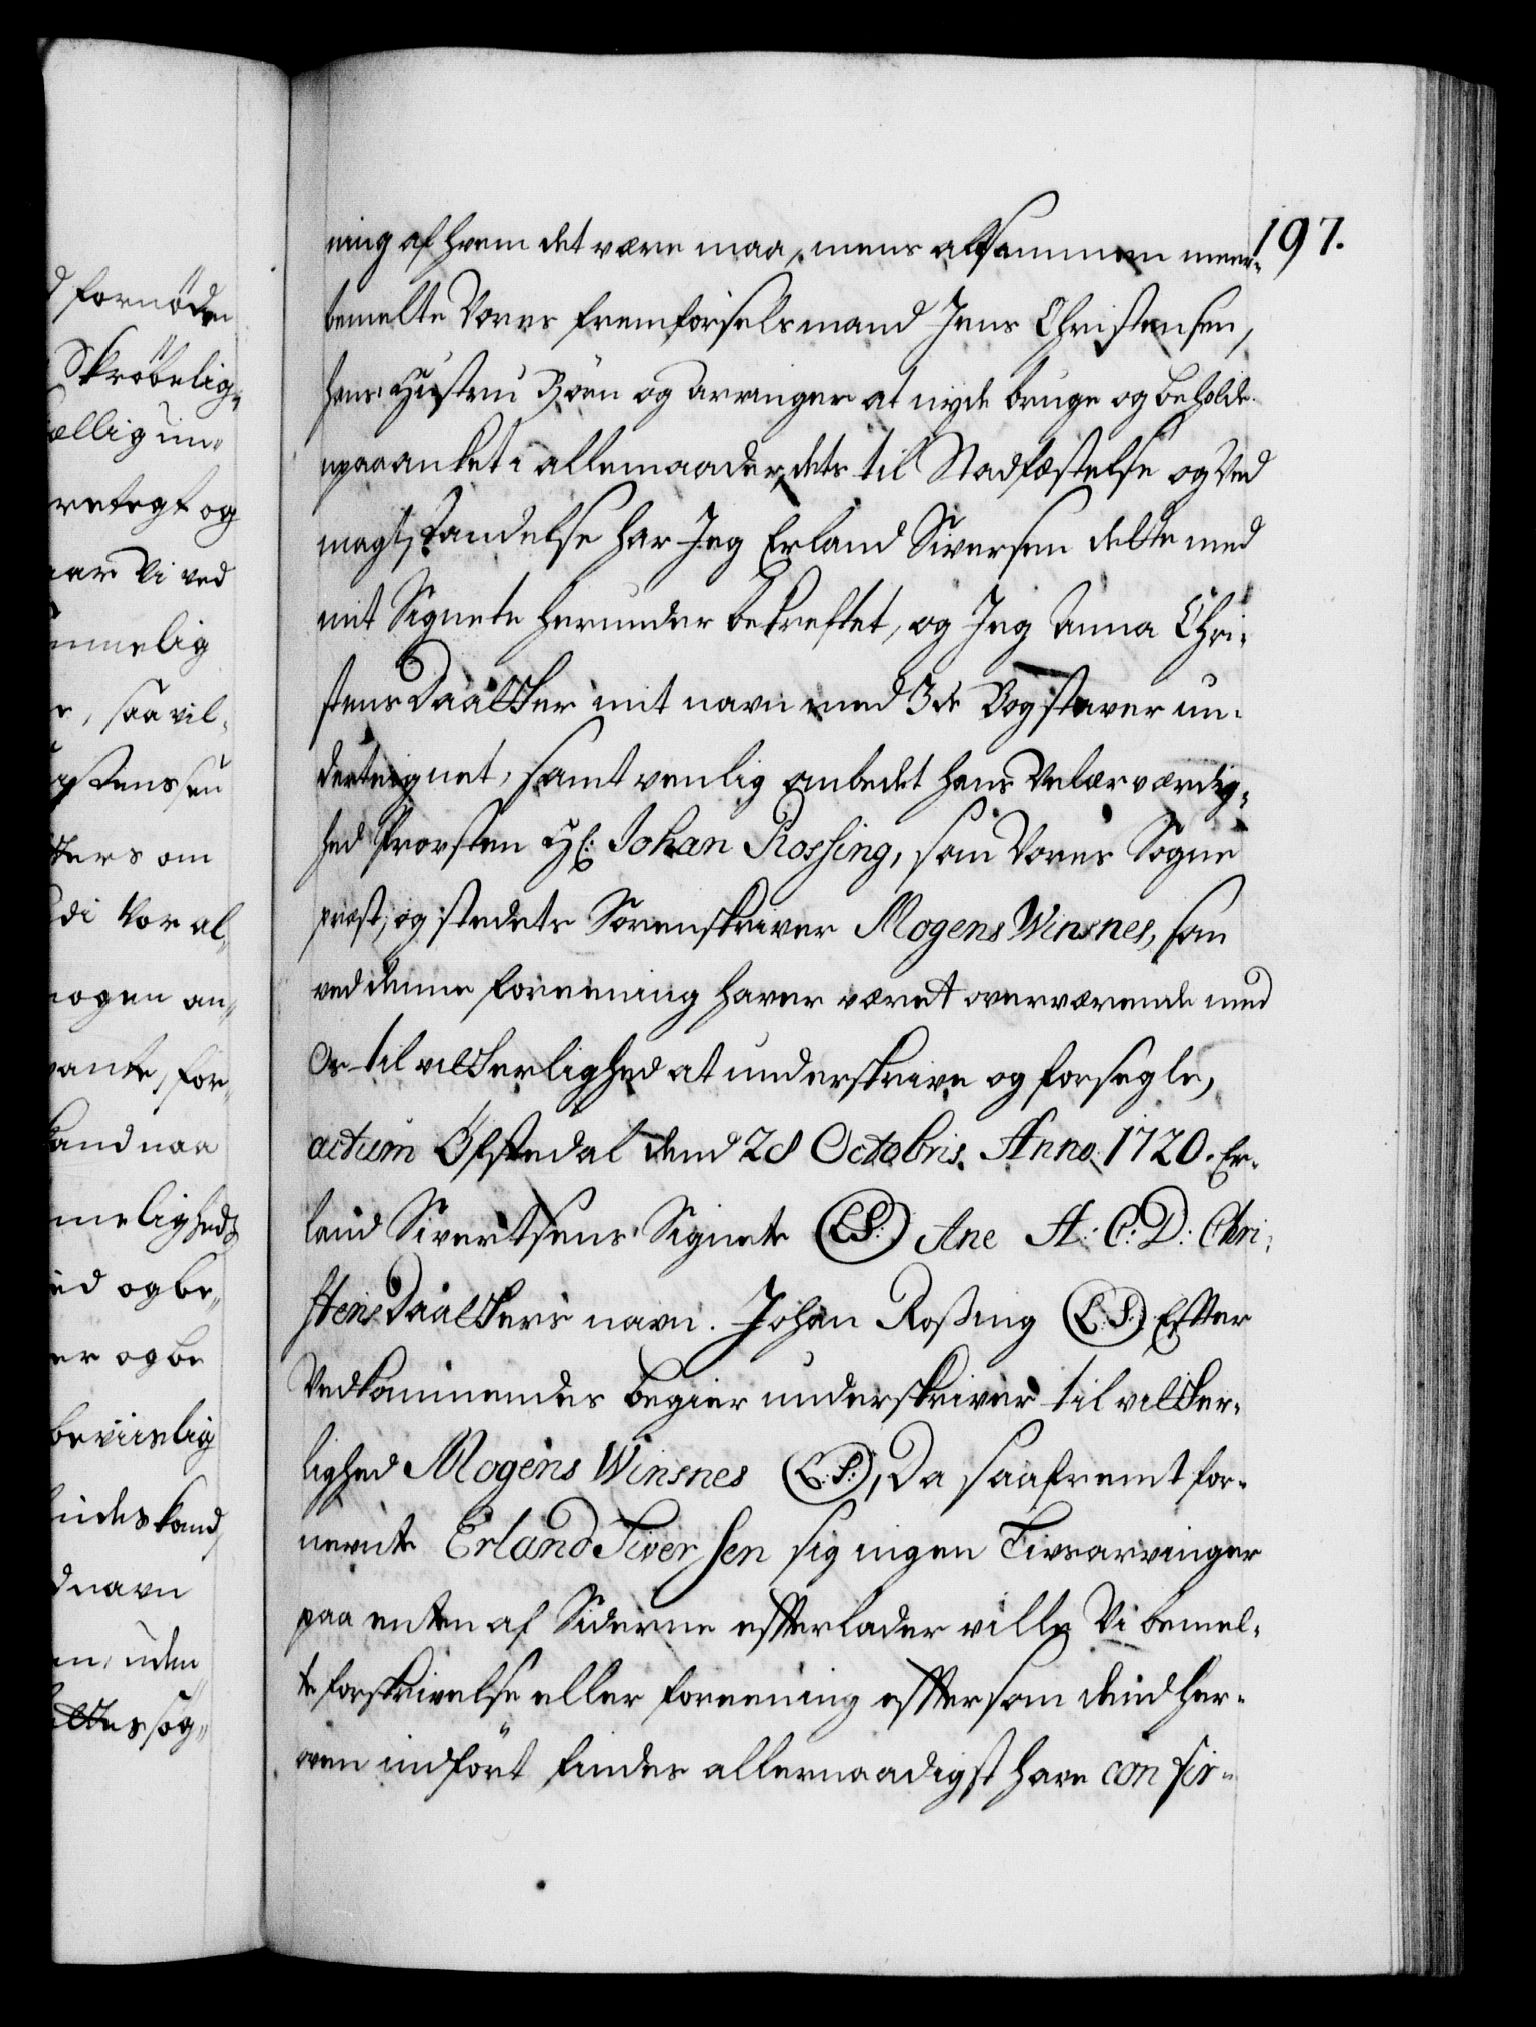 197.
ning af hvem det være maa, mens altsammen meer-
bemelte Vores fremførselsmand Jens Christensen,
hans Hustru Børn og Arvinger at nyde bruge og beholde
upaaanket i allemaader, dets til Stadfæstelse og Ved
magt, standelse har Jeg Erland Siversen dette med
mit Signete herunder bekreftet, og Jeg Anna Chri-
stens Daatter mit navn med 3de Bogstaver un-
derteignet, samt venlig ombedet hans Velærværdig-
hed Provsten Hr: Johan Rossing, som Vores Sogne
præst, og stedets Sorenskriver Mogens Winsnes, som
ved denne foreening haver været overværende med
Os til vitterlighed at underskrive og forsegle,
actum Øfstedal dend 28 Octobris Anno 1720. Er-
land Sivertsens Signete (L.S:) Ane A: C: D: Chri-
stens Daatters navn. Johan Roßing (L:S:) Efter
Vedkommendes begier underskriver til vitter-
lighed Mogens Winsnes (L:S:), Da saafremt for-
nevnte Erland Siversen sig ingen Livsarvinger
paa enten af Siderne efterlader ville Vi bemel-
te forskrivelse eller foreening eftersom dend her-
oven indført findes allernaadigst have confir-
d fornøden
Skrøbelig-
ællig un-
retegt og
aar Vi ved
mmelig
e, saa vil-
stensen
tters om
di Vor al-
nogen an-
vante, for-
kand naa
melighed
ed og be-
er og be
beviislig
indes kand,
d navn
en, uden
ttes søg-